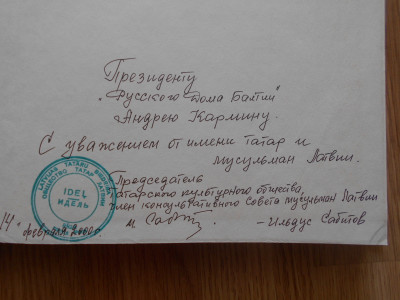 Президенту
"Русского Дома Балтии"
Андрею Кармину.
С уважением от имени татар и
мусульман Латвии.
Председатель
татарского культурного общества,
член консультативного Совета мусульман Латвии
- Ильдус Сабитов
14 февраля 2000
IDEL
ИДЕЛЬ